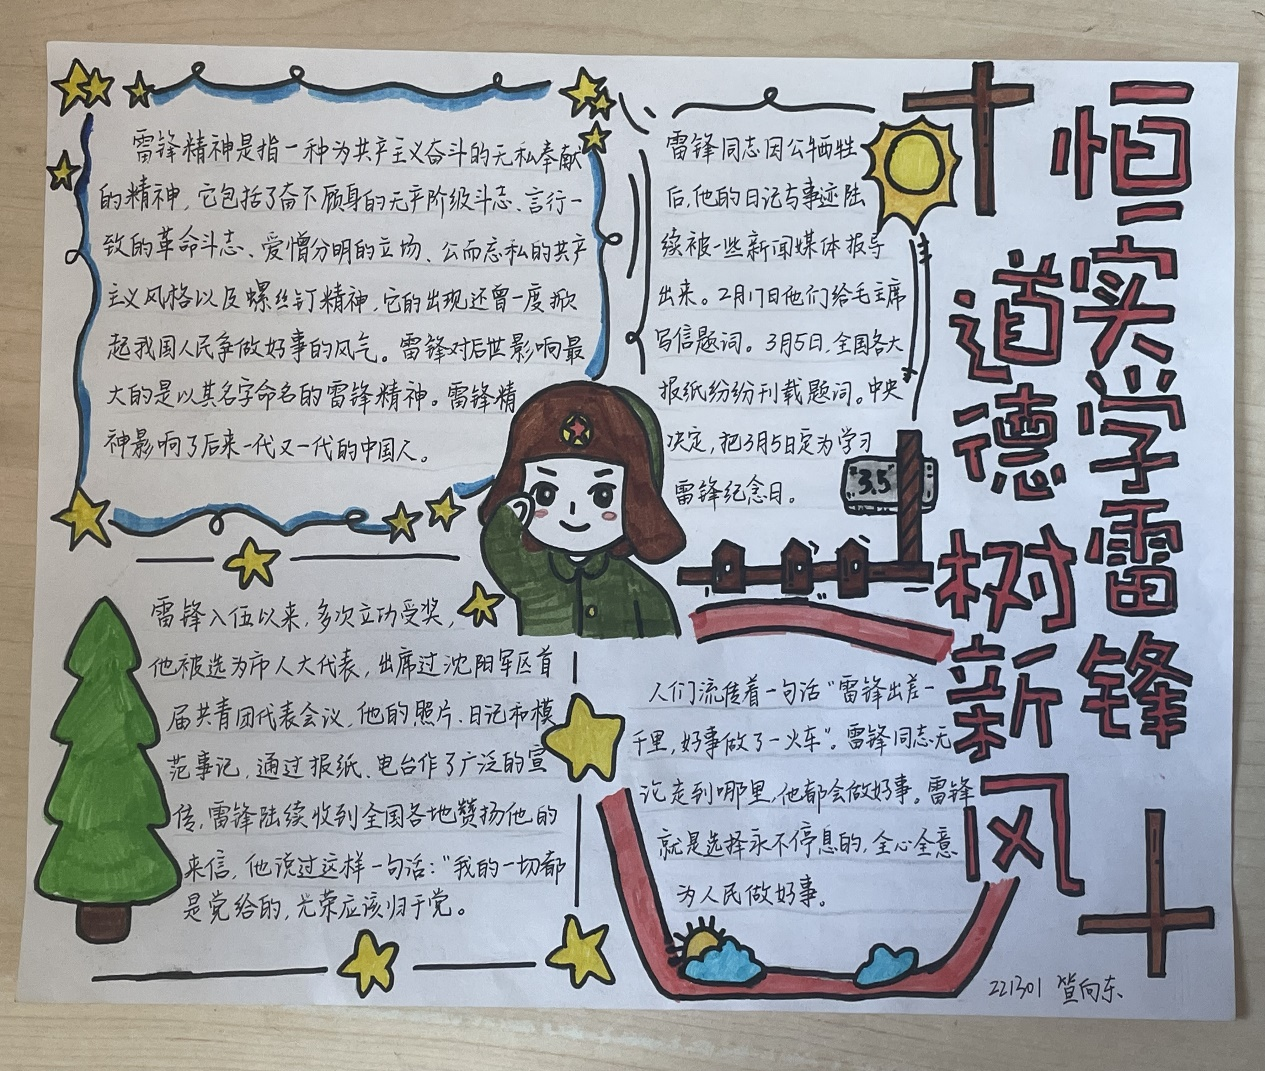 恒实学雷锋
道德树新风
雷锋精神是指一种为共产主义奋斗的无私奉献
的精神，它包括了奋不顾身的无产阶级斗志、言行一
致的革命斗志、爱憎分明的立场、公而忘私的共产
主义风格以及螺丝钉精神，它的出现还曾一度掀
起我国人民争做好事的风气。雷锋对后世影响最
大的是以其名字命名的雷锋精神。雷锋精
神影响了后来一代又一代的中国人。
雷锋同志因公牺牲
后，他的日记与事迹陆
续被一些新闻媒体报导
出来。2月17日他们给毛主席
写信题词。3月5日，全国各大
报纸纷纷刊载题词。中央
决定，把3月5日定为学习
雷锋纪念日。
3.5
雷锋入伍以来，多次立功受奖，
他被选为市人大代表，出席过沈阳军区首
届共青团代表会议，他的照片、日记和模
范事记，通过报纸、电台作了广泛的宣
传，雷锋陆续收到全国各地赞扬他的
来信，他说过这样一句话：“我的一切都
是党给的，光荣应该归于党。
人们流传着一句话“雷锋出差一
千里，好事做了一火车”。雷锋同志无
论走到哪里，他都会做好事。雷锋
就是选择永不停息的，全心全意
为人民做好事。
221301 昝向东